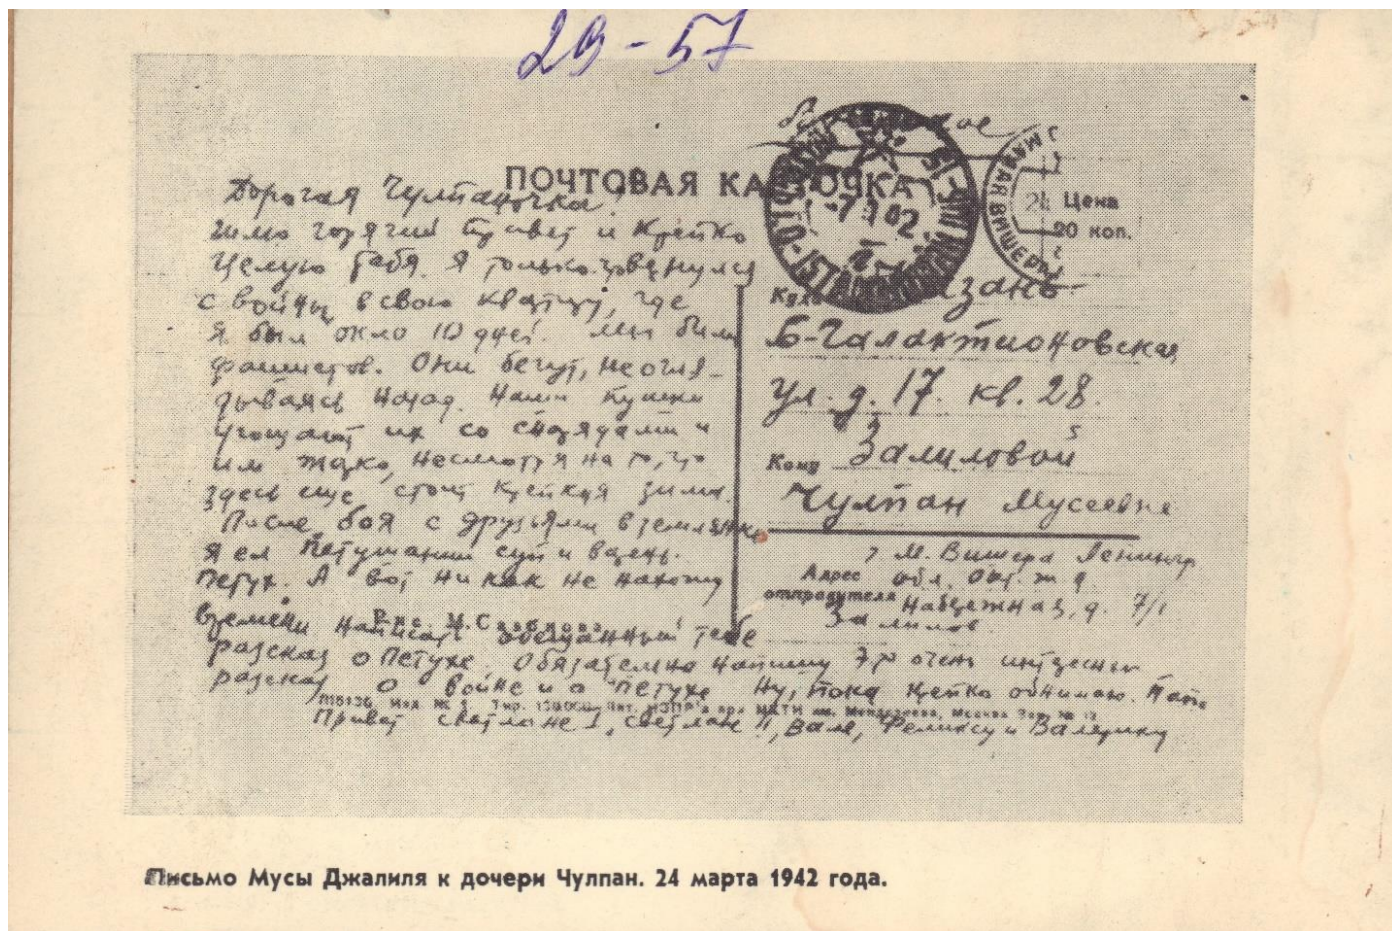 29-57
ПОЧТОВАЯ КАРТОЧКА
Цена
20 коп.
МАЛАЯ ВИШЕРА
Дорогая Чулпаночка!
шлю горячий привет и крепко
целую тебя. Я только что вернулся
с войны в свою квартиру, где
я был около 10 дней. Мы били
фашистов. Они бегут, не огля-
дываясь назад. Наши пушки
угощают их со снарядами и
им жарко, несмотря на то, что
здесь еще стоит крепкая зима.
После боя с друзьями в землянке
я ел петушиный суп и
петух. А вот ни как не нахожу
времени написать обещанный тебе
рассказ о петухе. Обязательно напишу очень интересный
рассказ о войне и о петухе. Ну, пока крепко обнимаю. Папа
Привет Светлане I, Светлане II, Вале, Феликсу и Валерику
Куда Казань
Б-Галактионовская
ул. д. 17. кв. 28.
Кому Залиловой
Чулпан Мусеевне
Адрес
отправителя
М. Вишера Ленингр
обл. Окт. ж д
Набережная, д. 7/1
Залилов.
Письмо Мусы Джалиля к дочери Чулпан. 24 марта 1942 года.